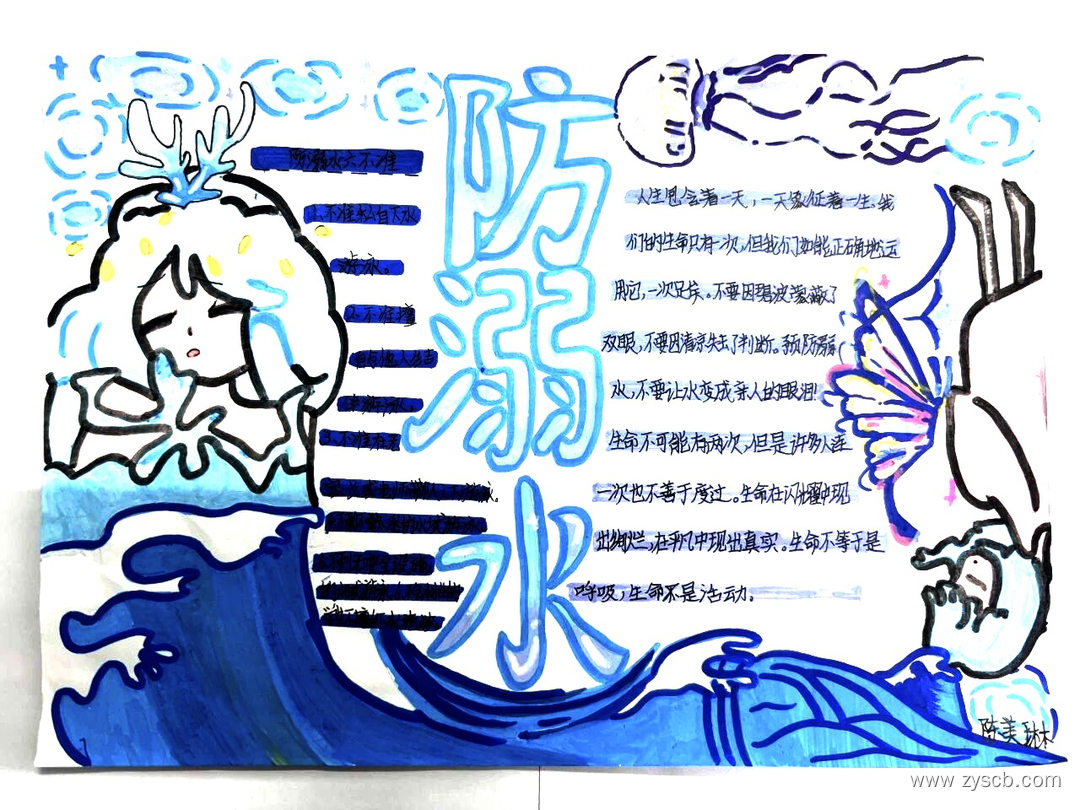 防溺水
防溺水六不准
1.不准私自下水
游泳。
2.不准擅
自与他人结
伴游泳。
3.不准在无
人生包含着一天,一天象征着一生。我
们的生命只有一次,但我们如能正确地运
用它,一次足矣。不要因碧波荡漾蔽了
双眼,不要因清凉失去了判断。预防溺
水,不要让水变成亲人的眼泪!
生命不可能有两次,但是许多人连
一次也不善于度过。生命在闪耀中现
出绚烂,在平凡中现出真实。生命不等于是
呼吸,生命不是活动。
陈美琳
www.zyscb.com